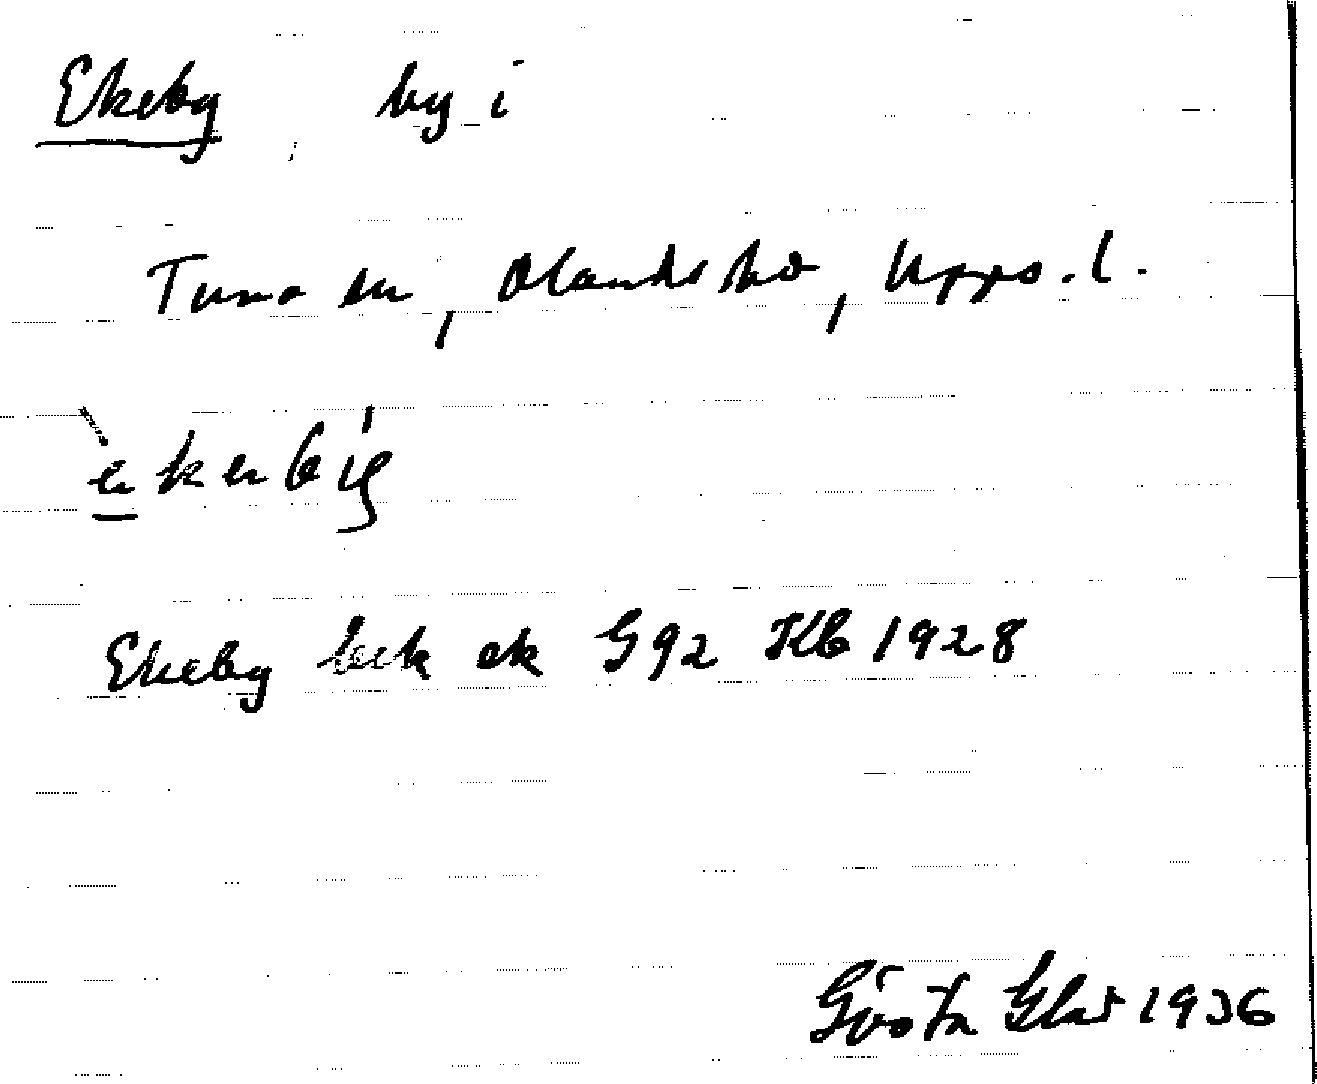 Ekeby, by i
Tuna sn, Olands hd, Upps. l.
Ekeby bek ek G92 Kb 1928
Gösta 1936